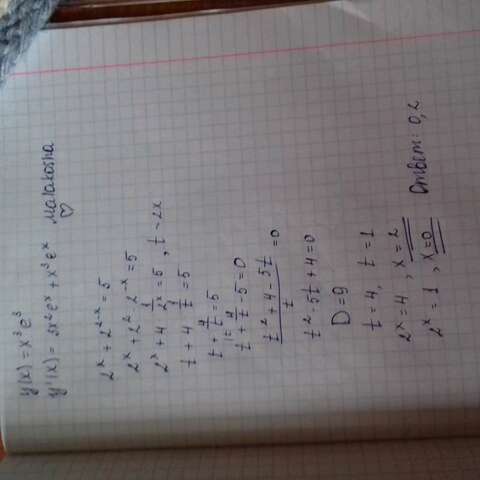 y(x) = x³ e³
y'(x) = 3x² eˣ + x³ eˣ Malakosha ♡
2ˣ + 2²⁻ˣ = 5
2ˣ + 2² · 2⁻ˣ = 5
2ˣ + 4 1/2ˣ = 5 , t - 2x
t + 4 1/t = 5
t + 4/t = 5
t + 4/t - 5 = 0
(t² + 4 - 5t)/t = 0
t² - 5t + 4 = 0
D = 9
t = 4, t = 1
2ˣ = 4 , x = 2
2ˣ = 1 , x = 0 Ответ: 0, 2